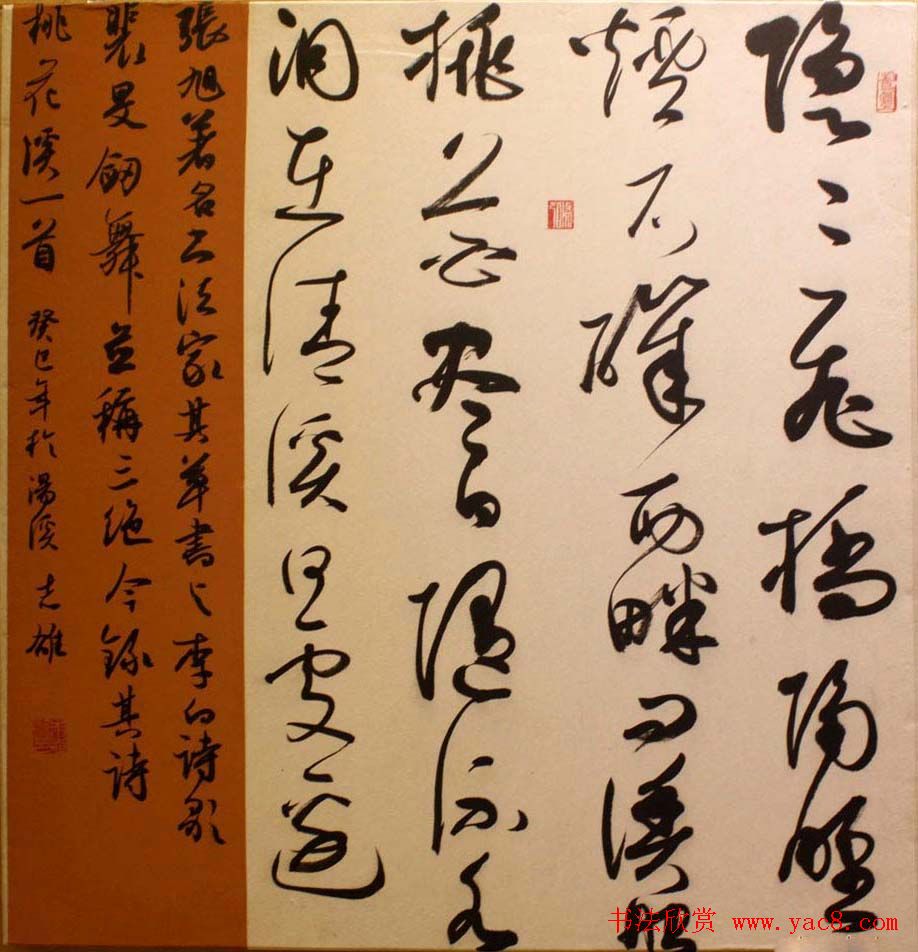 隱〻飛橋隔野
煙石磯西畔問漁船
桃花盡日隨流水
洞在清溪何處邊
張旭著名書法家其草書与李白詩歌
裴旻劍舞並稱三絕今錄其詩
桃花溪一首 癸巳年於湯溪 志雄
书法欣赏 www.yac8.com